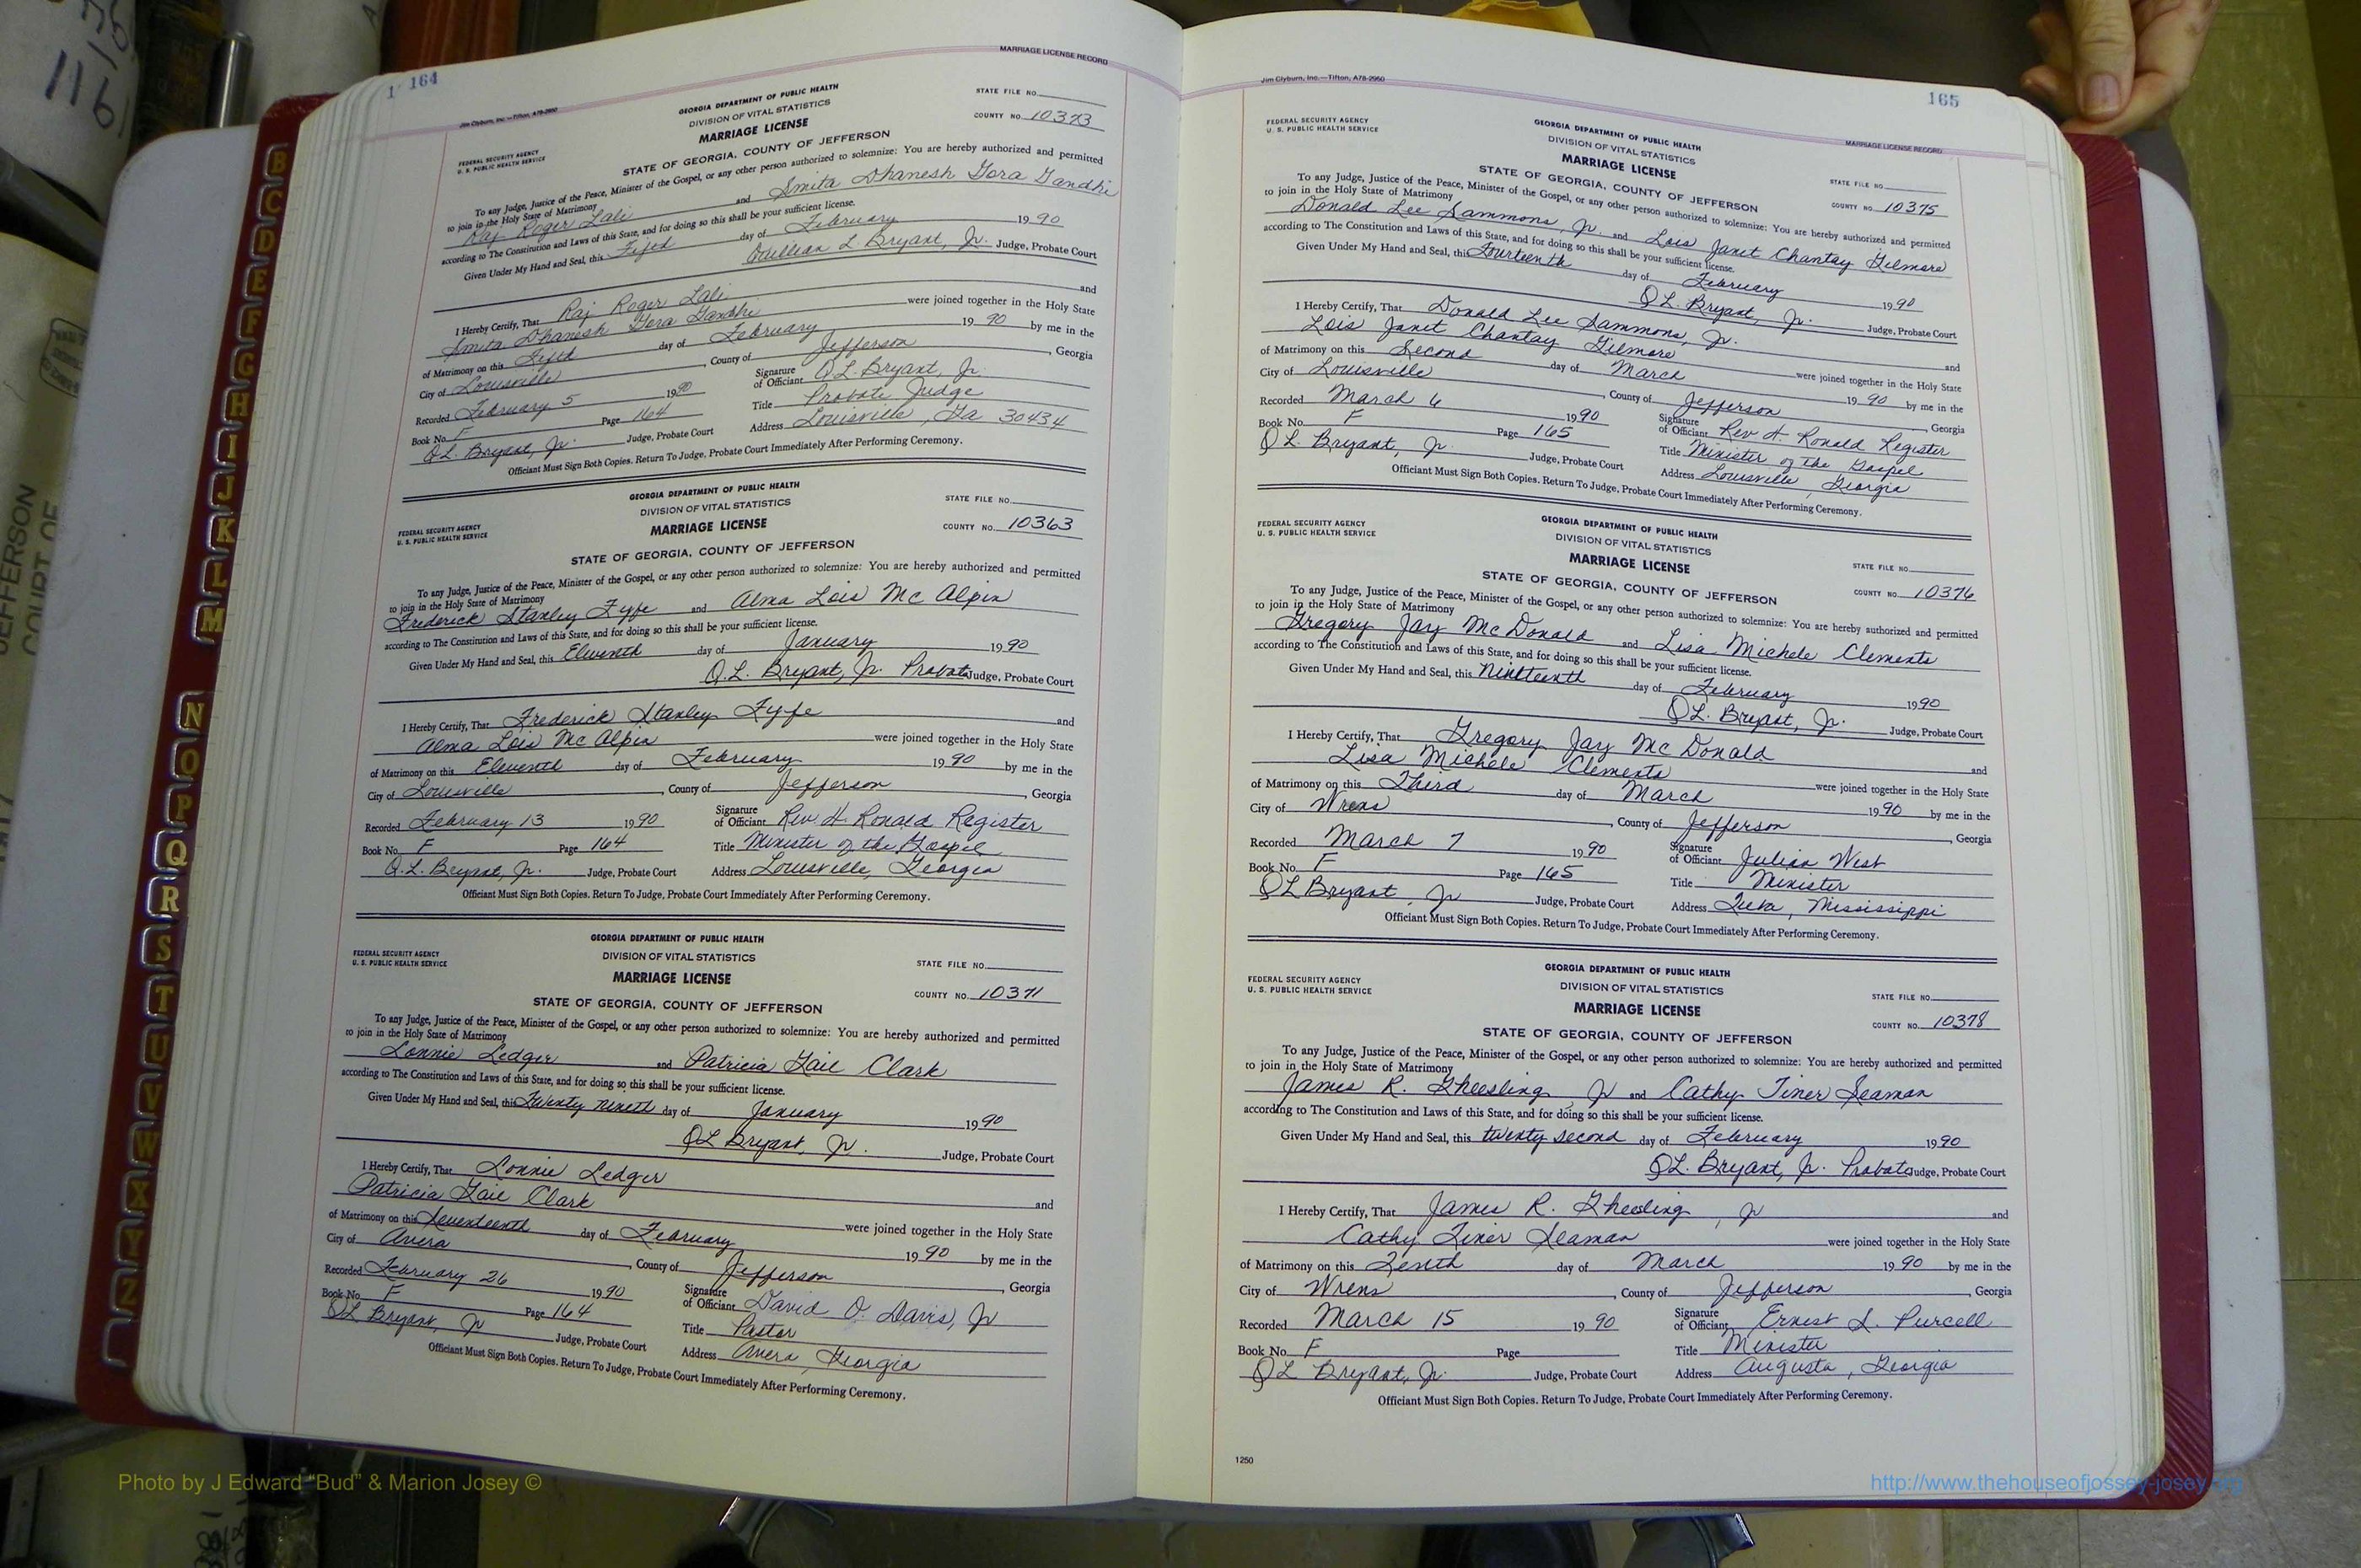 1 164
MARRIAGE LICENSE RECORD
Jim Clyburn, Inc.—Tifton, A78-2950
GEORGIA DEPARTMENT OF PUBLIC HEALTH
DIVISION OF VITAL STATISTICS
MARRIAGE LICENSE
STATE FILE NO.
COUNTY NO. 10373
FEDERAL SECURITY AGENCY
U. S. PUBLIC HEALTH SERVICE
STATE OF GEORGIA, COUNTY OF JEFFERSON
To any Judge, Justice of the Peace, Minister of the Gospel, or any other person authorized to solemnize: You are hereby authorized and permitted
to join in the Holy State of Matrimony
Raj Roger Lali and Smita Dhanesh Gora Gandhi
according to The Constitution and Laws of this State, and for doing so this shall be your sufficient license.
Given Under My Hand and Seal, this Fifth day of February 1990
Quillian L. Bryant, Jr. Judge, Probate Court
I Hereby Certify, That Raj Roger Lali and
Smita Dhanesh Gora Gandhi were joined together in the Holy State
of Matrimony on this Fifth day of February 1990 by me in the
City of Louisville, County of Jefferson, Georgia
Recorded February 5 1990 Signature of Officiant Q.L. Bryant, Jr.
Book No. F Page 164 Title Probate Judge
Q.L. Bryant, Jr. Judge, Probate Court Address Louisville, Ga 30434
Officiant Must Sign Both Copies. Return To Judge, Probate Court Immediately After Performing Ceremony.
GEORGIA DEPARTMENT OF PUBLIC HEALTH
DIVISION OF VITAL STATISTICS
MARRIAGE LICENSE
STATE FILE NO.
COUNTY NO. 10363
FEDERAL SECURITY AGENCY
U. S. PUBLIC HEALTH SERVICE
STATE OF GEORGIA, COUNTY OF JEFFERSON
To any Judge, Justice of the Peace, Minister of the Gospel, or any other person authorized to solemnize: You are hereby authorized and permitted
to join in the Holy State of Matrimony
Frederick Stanley Fyfe and Alma Lois Mc Alpin
according to The Constitution and Laws of this State, and for doing so this shall be your sufficient license.
Given Under My Hand and Seal, this Eleventh day of January 1990
Q.L. Bryant, Jr. Probate Judge, Probate Court
I Hereby Certify, That Frederick Stanley Fyfe and
Alma Lois Mc Alpin were joined together in the Holy State
of Matrimony on this Eleventh day of February 1990 by me in the
City of Louisville, County of Jefferson, Georgia
Recorded February 13 1990 Signature of Officiant Rev. H. Ronald Register
Book No. F Page 164 Title Minister of the Gospel
Q.L. Bryant, Jr. Judge, Probate Court Address Louisville, Georgia
Officiant Must Sign Both Copies. Return To Judge, Probate Court Immediately After Performing Ceremony.
GEORGIA DEPARTMENT OF PUBLIC HEALTH
DIVISION OF VITAL STATISTICS
MARRIAGE LICENSE
STATE FILE NO.
COUNTY NO. 10371
FEDERAL SECURITY AGENCY
U. S. PUBLIC HEALTH SERVICE
STATE OF GEORGIA, COUNTY OF JEFFERSON
To any Judge, Justice of the Peace, Minister of the Gospel, or any other person authorized to solemnize: You are hereby authorized and permitted
to join in the Holy State of Matrimony
Lonnie Ledger and Patricia Gail Clark
according to The Constitution and Laws of this State, and for doing so this shall be your sufficient license.
Given Under My Hand and Seal, this Twenty nineth day of January 1990
QL Bryant, Jr. Judge, Probate Court
I Hereby Certify, That Lonnie Ledger and
Patricia Gail Clark were joined together in the Holy State
of Matrimony on this Seventeenth day of February 1990 by me in the
City of Avera, County of Jefferson, Georgia
Recorded February 26 1990 Signature of Officiant David O. Davis, Jr
Book No. F Page 164 Title Pastor
QL Bryant, Jr Judge, Probate Court Address Avera, Georgia
Officiant Must Sign Both Copies. Return To Judge, Probate Court Immediately After Performing Ceremony.
165
Jim Clyburn, Inc.—Tifton, A78-2950
MARRIAGE LICENSE RECORD
FEDERAL SECURITY AGENCY
U. S. PUBLIC HEALTH SERVICE
GEORGIA DEPARTMENT OF PUBLIC HEALTH
DIVISION OF VITAL STATISTICS
MARRIAGE LICENSE
STATE OF GEORGIA, COUNTY OF JEFFERSON
STATE FILE NO.
COUNTY NO. 10375
To any Judge, Justice of the Peace, Minister of the Gospel, or any other person authorized to solemnize: You are hereby authorized and permitted
to join in the Holy State of Matrimony
Donald Lee Sammons, Jr. and Lois Janet Chantay Gilmore
according to The Constitution and Laws of this State, and for doing so this shall be your sufficient license.
Given Under My Hand and Seal, this Fourteenth day of February 1990
QL. Bryant, Jr. Judge, Probate Court
I Hereby Certify, That Donald Lee Sammons, Jr. and
Lois Janet Chantay Gilmore were joined together in the Holy State
of Matrimony on this Second day of March 1990 by me in the
City of Louisville, County of Jefferson, Georgia
Recorded March 6 1990 Signature of Officiant Rev H. Ronald Register
Book No. F Page 165 Title Minister of the Gospel
QL. Bryant, Jr. Judge, Probate Court Address Louisville, Georgia
Officiant Must Sign Both Copies. Return To Judge, Probate Court Immediately After Performing Ceremony.
FEDERAL SECURITY AGENCY
U. S. PUBLIC HEALTH SERVICE
GEORGIA DEPARTMENT OF PUBLIC HEALTH
DIVISION OF VITAL STATISTICS
MARRIAGE LICENSE
STATE OF GEORGIA, COUNTY OF JEFFERSON
STATE FILE NO.
COUNTY NO. 10376
To any Judge, Justice of the Peace, Minister of the Gospel, or any other person authorized to solemnize: You are hereby authorized and permitted
to join in the Holy State of Matrimony
Gregory Jay McDonald and Lisa Michele Clements
according to The Constitution and Laws of this State, and for doing so this shall be your sufficient license.
Given Under My Hand and Seal, this Nineteenth day of February 1990
QL. Bryant, Jr. Judge, Probate Court
I Hereby Certify, That Gregory Jay Mc Donald and
Lisa Michele Clements were joined together in the Holy State
of Matrimony on this Third day of March 1990 by me in the
City of Wrens, County of Jefferson, Georgia
Recorded March 7 1990 Signature of Officiant Julian West
Book No. F Page 165 Title Minister
QL Bryant, Jr Judge, Probate Court Address Iuka, Mississippi
Officiant Must Sign Both Copies. Return To Judge, Probate Court Immediately After Performing Ceremony.
FEDERAL SECURITY AGENCY
U. S. PUBLIC HEALTH SERVICE
GEORGIA DEPARTMENT OF PUBLIC HEALTH
DIVISION OF VITAL STATISTICS
MARRIAGE LICENSE
STATE OF GEORGIA, COUNTY OF JEFFERSON
STATE FILE NO.
COUNTY NO. 10378
To any Judge, Justice of the Peace, Minister of the Gospel, or any other person authorized to solemnize: You are hereby authorized and permitted
to join in the Holy State of Matrimony
James R. Gheesling, Jr and Cathy Tiner Seaman
according to The Constitution and Laws of this State, and for doing so this shall be your sufficient license.
Given Under My Hand and Seal, this twenty second day of February 1990
QL. Bryant, Jr. Probate Judge, Probate Court
I Hereby Certify, That James R. Gheesling, Jr and
Cathy Tiner Seaman were joined together in the Holy State
of Matrimony on this Tenth day of March 1990 by me in the
City of Wrens, County of Jefferson, Georgia
Recorded March 15 1990 Signature of Officiant Ernest L. Purcell
Book No. F Page Title Minister
QL Bryant, Jr. Judge, Probate Court Address Augusta, Georgia
Officiant Must Sign Both Copies. Return To Judge, Probate Court Immediately After Performing Ceremony.
1250
B
C
D
E
F
G
H
I
J
K
L
M
N
O
P
Q
R
S
T
U
V
W
X
Y
Z
116
JEFFERSON
COURT OF
Photo by J Edward “Bud” & Marion Josey ©
http://www.thehouseofjossey-josey.org